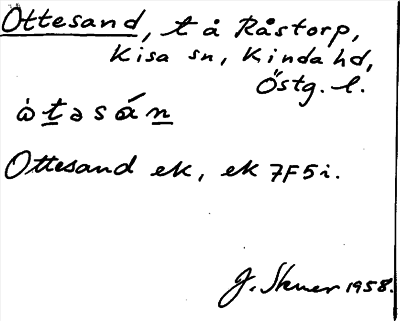 Ottesand, t å Råstorp,
Kisa sn, Kinda hd,
Östg. l.
òtəsán
Ottesand ek, ek 7F5i.
1958.